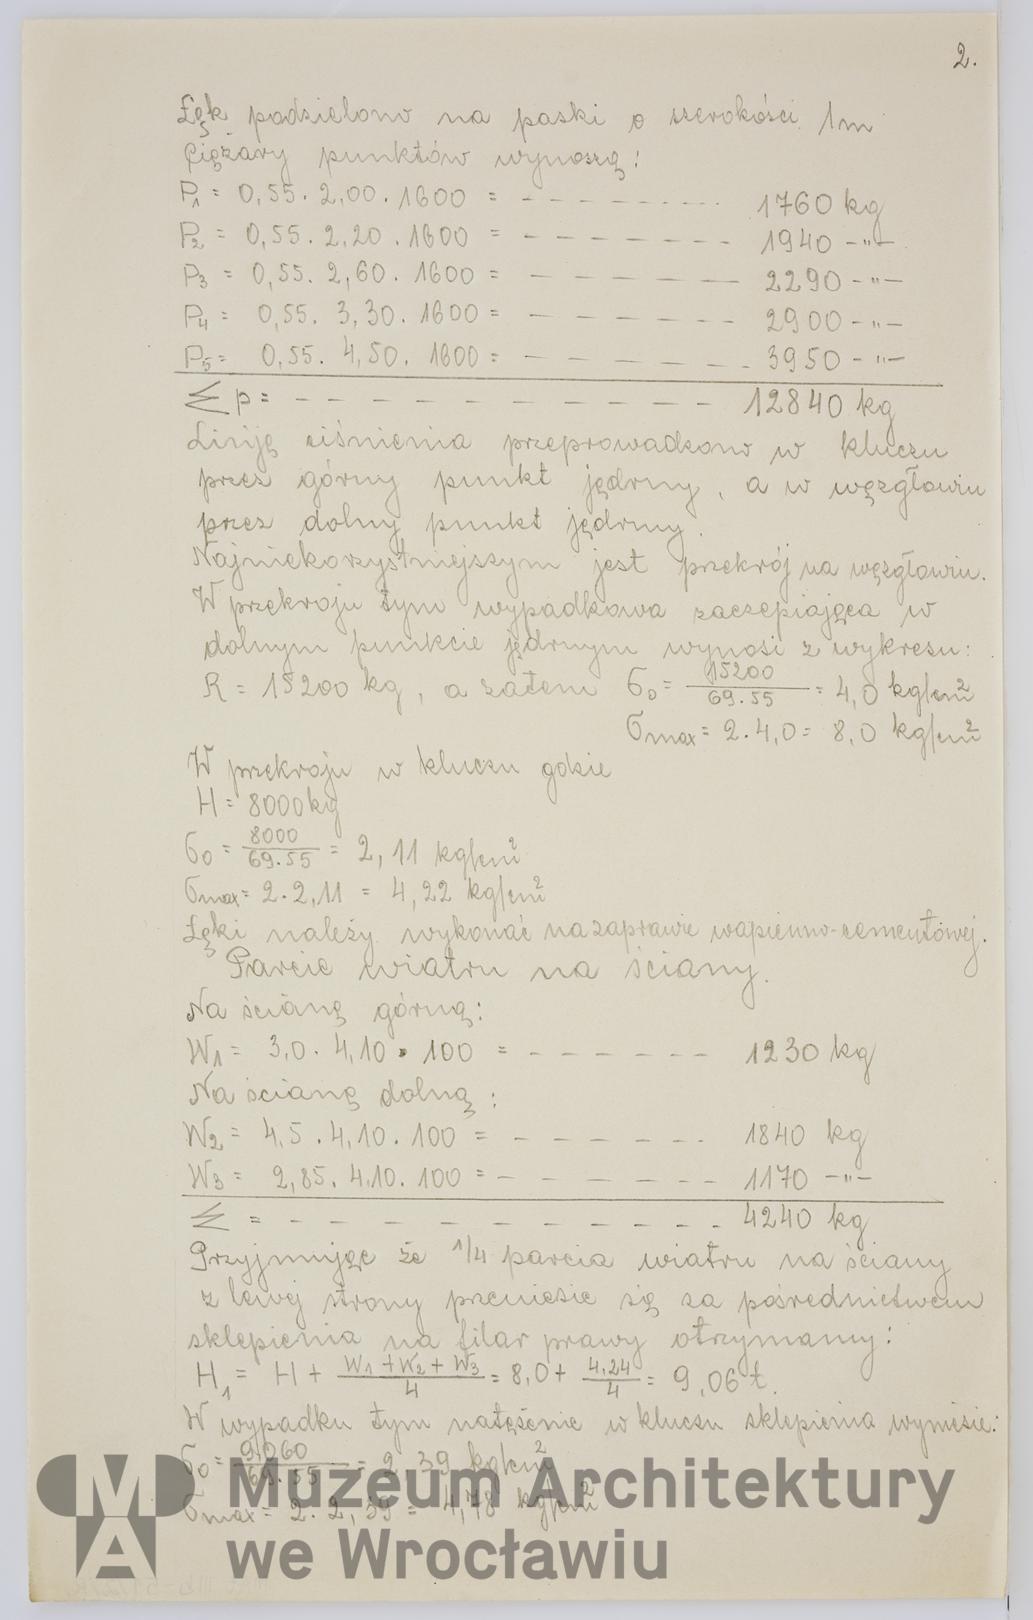 2.
Łęk podzielono na paski o szerokości 1m
Ciężary punktów wynoszą:
P1 = 0,55. 2,00. 1600 = - - - - - - - - - 1760 kg
P2 = 0,55. 2,20. 1600 = - - - - - - - - 1940 -"-
P3 = 0,55. 2,60. 1600 = - - - - - - - 2290 -"-
P4 = 0,55. 3,30. 1600 = - - - - - - - 2900 -"-
P5 = 0,55. 4,50. 1600 = - - - - - - - 3950 -"-
Σp = - - - - - - - - - - - - 12840 kg
Linję ciśnienia przeprowadzono w kluczu
przez górny punkt jędrny, a w węzgłowiu
przez dolny punkt jędrny.
Najniekorzystniejszym jest przekrój na węzgłowiu.
W przekroju tym wypadkowa zaczepiająca w
dolnym punkcie jędrnym wynosi z wykresu:
R = 15200 kg, a zatem σo = 15200 / 69.55 = 4,0 kg/cm²
σmax = 2. 4,0 = 8,0 kg/cm²
W przekroju w kluczu gdzie
H = 8000 kg
σo = 8000 / 69.55 = 2,11 kg/cm²
σmax = 2. 2,11 = 4,22 kg/cm²
Łęki należy wykonać na zaprawie wapienno-cementowej.
Parcie wiatru na ściany.
Na ścianę górną:
W1 = 3,0. 4,10. 100 = - - - - - - 1230 kg
Na ścianę dolną:
W2 = 4,5. 4,10. 100 = - - - - - - 1840 kg
W3 = 2,85. 4,10. 100 = - - - - - - 1170 -"-
Σ = - - - - - - - - - - - - 4240 kg
Przyjmując że 1/4 parcia wiatru na ściany
z lewej strony przeniesie się za pośrednictwem
sklepienia na filar prawy otrzymamy:
H1 = H + W1+W2+W3 / 4 = 8,0 + 4,24 / 4 = 9,06 t.
W wypadku tym natężenie w kluczu sklepienia wyniesie:
σo = 9060 / 69.55 = 2,39 kg/cm²
σmax = 2. 2,39 = 4,78 kg/cm²
MA
Muzeum Architektury
we Wrocławiu